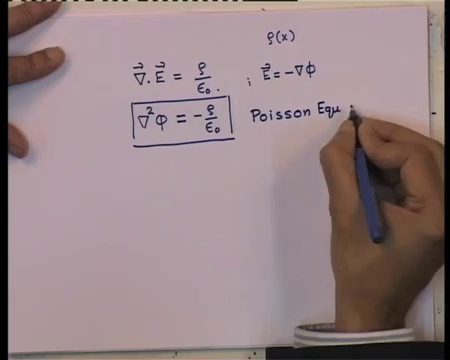 ρ(x)
∇⃗.E⃗ = ρ/ϵ₀. ; E⃗ = -∇ϕ
∇²ϕ = -ρ/ϵ₀ Poisson Equ